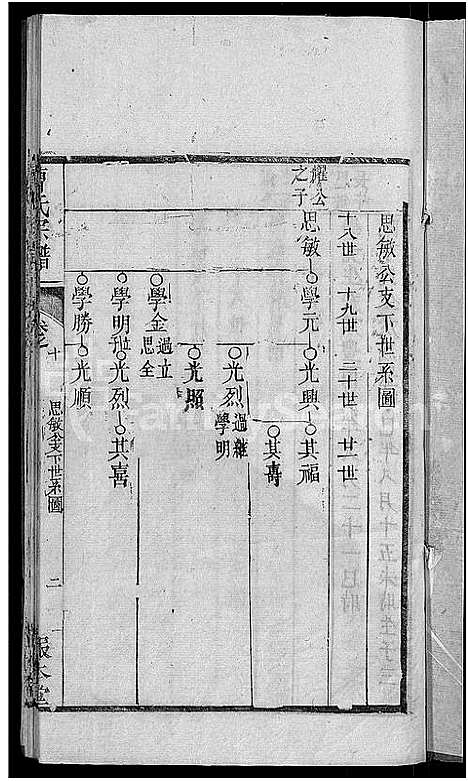 思敏公支下世系圖
十八世 十九世 二十世 廿一世
耀公之子
思敏 學元 光興 其福
其壽
光烈 過繼學明
光照
學金 過立思全
學明 光烈 其喜
學勝 光順
氏宗譜
卷之十
思敏公支下世系圖
二